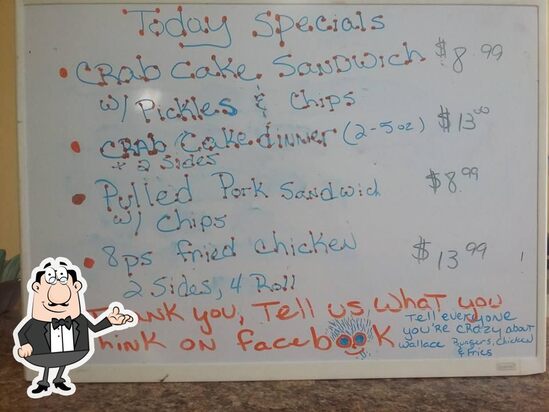 Today Specials
• CRab Cake Sandwich $8.99
w/ Pickles & Chips
• CRAB Cake dinner (2-5oz) $13.00
+ 2 Sides
• Pulled Pork Sandwich $8.99
w/ Chips
• 8ps fried chicken $13.99
2 Sides, 4 Roll
Thank you, Tell us what you
think on facebook
Tell everyone
you're CRazy about
Wallace Burgers, Chicken
& Fries